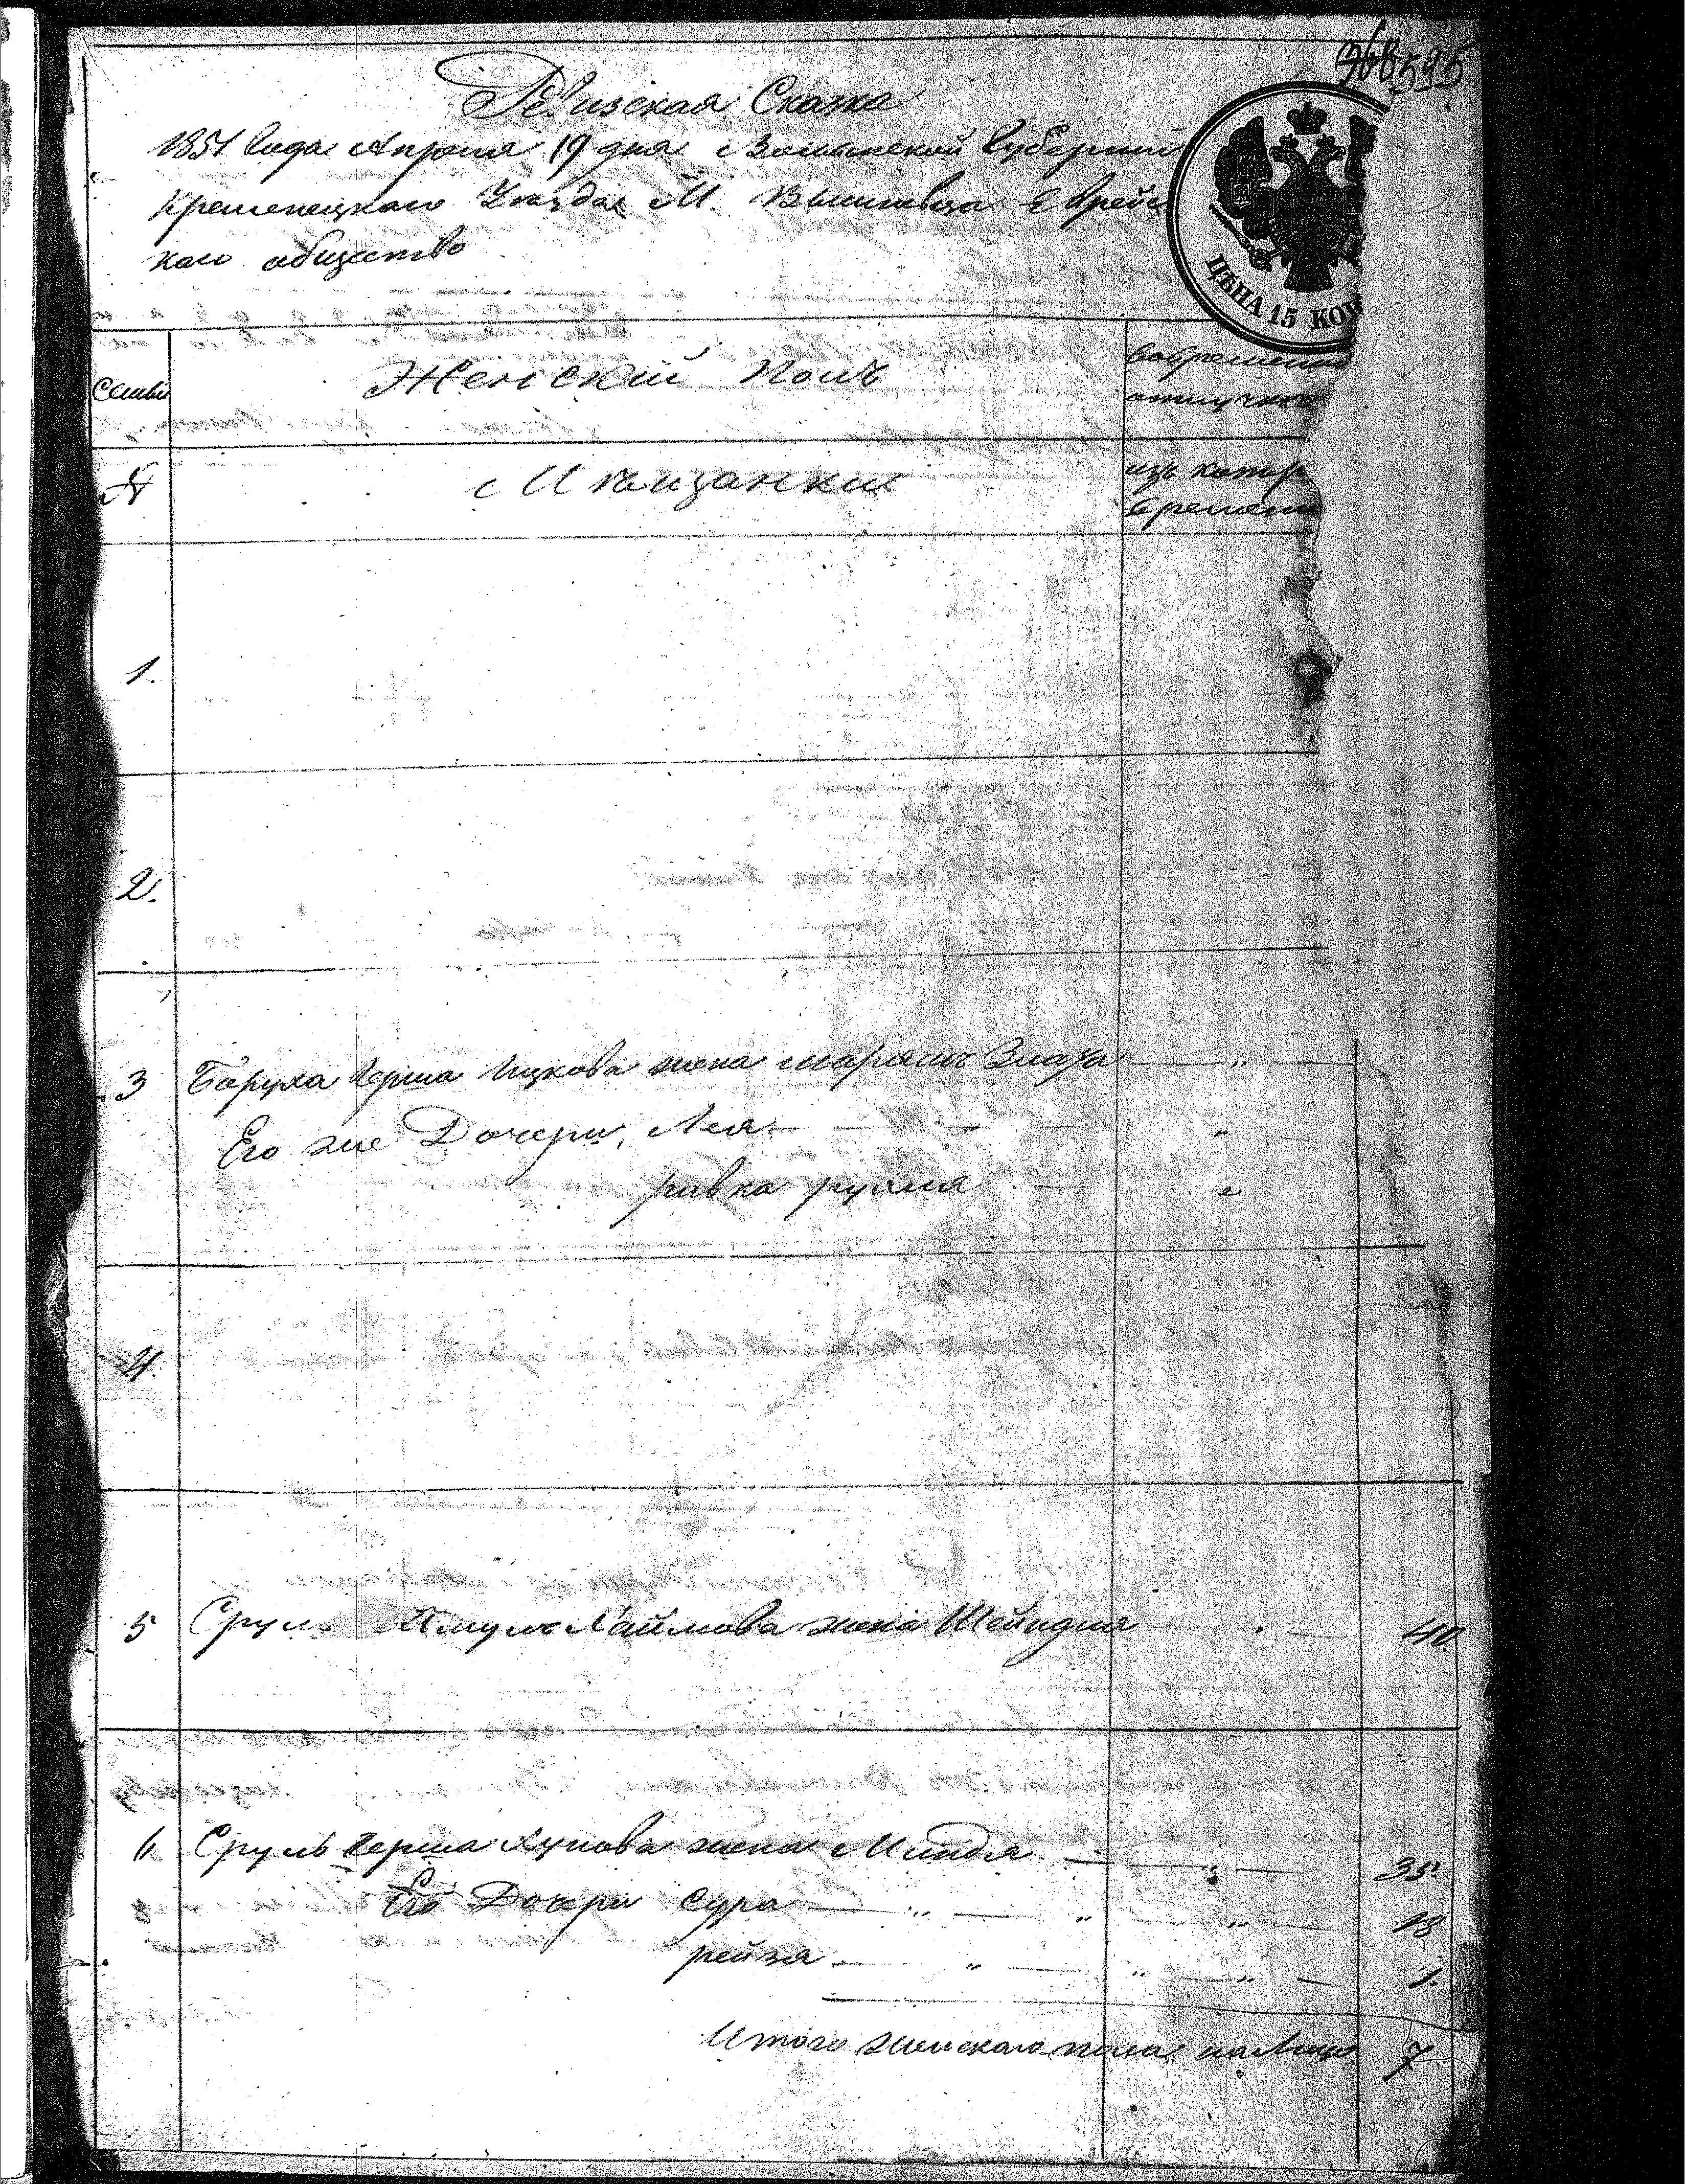 595
Ревизская Сказка
1851 Года Апреля 19 дня Волынской Губернии
Кременецкаго Уезда М. Вишневца Еврейс
каго общество
ЦѢНА 15 КОП
Семьи
Женский Полъ
вовременно
отлучке
№
Мещанки
изъ котор
времени
1.
2.
3 Боруха Герша Ицкова жена Марьямъ Злата
Его же Дочери, Лея
ривка рухля
4.
5 Сруль Шмуль Хаимова жена Шейндля 40
6 Сруль Герша жена Миндля 35.
Его Дочери Сура 18
рейзя 1.
Итого женскаго пола налицо 7